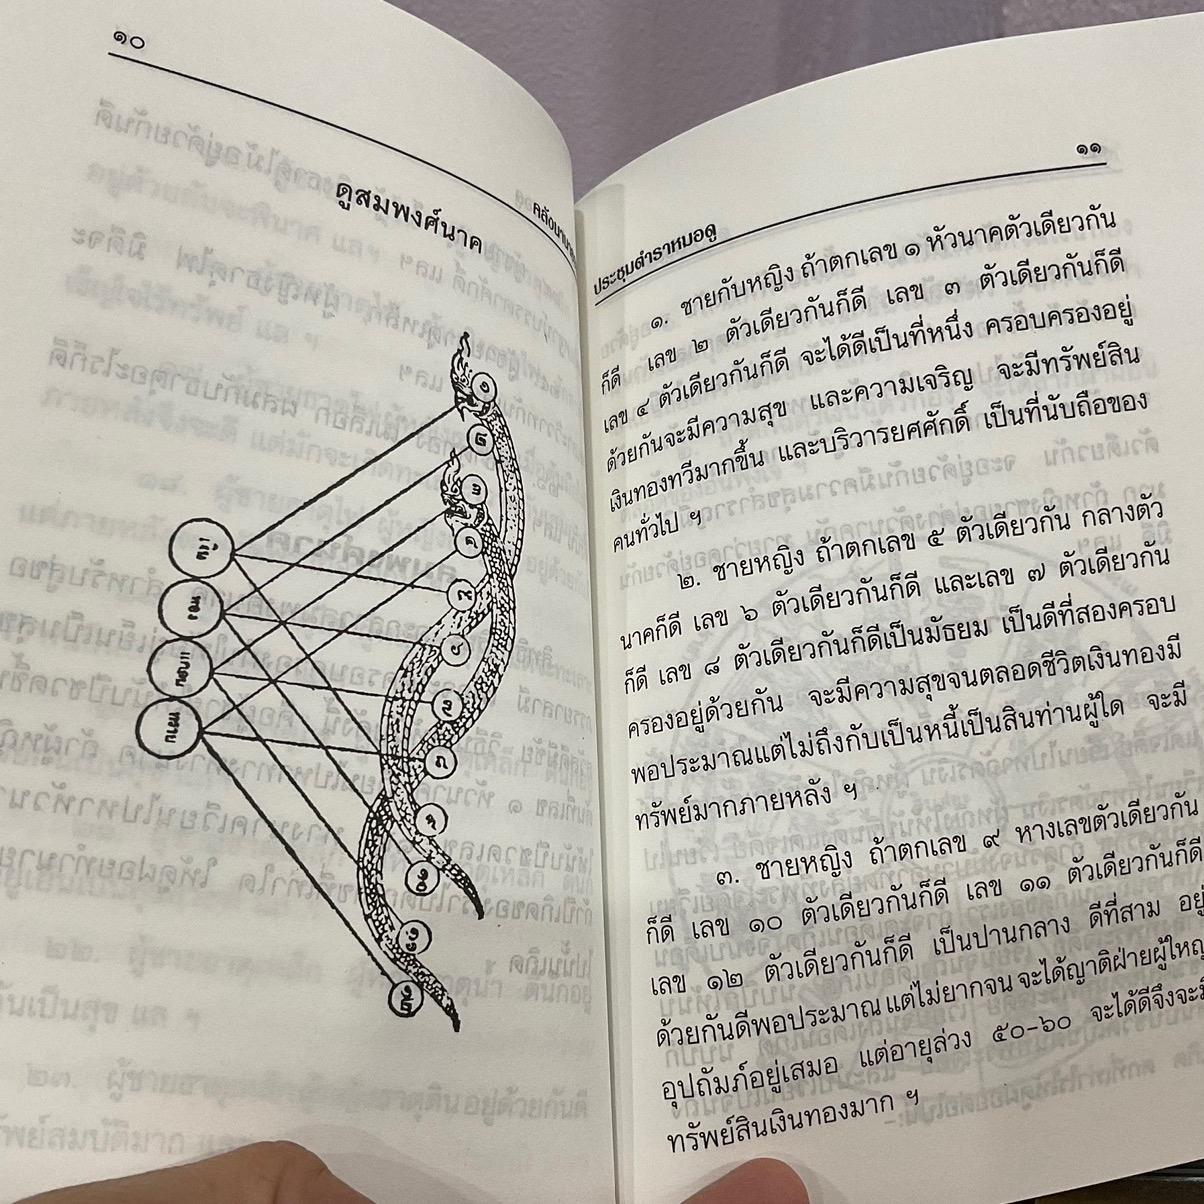 ๑๐
ดูสมพงศ์นาค
เงิน
ทอง
๑
๒
๓
๔
๕
๖
๗
๘
๙
๑๐
๑๑
๑๒
๑๑
ประชุมตำราหมอดู
๑. ชายกับหญิง ถ้าตกเลข ๑ หัวนาคตัวเดียวกัน
ก็ดี เลข ๒ ตัวเดียวกันก็ดี เลข ๓ ตัวเดียวกันก็ดี
เลข ๔ ตัวเดียวกันก็ดี จะได้ดีเป็นที่หนึ่ง ครอบครองอยู่
ด้วยกันจะมีความสุข และความเจริญ จะมีทรัพย์สิน
เงินทองทวีมากขึ้น และบริวารยศศักดิ์ เป็นที่นับถือของ
คนทั่วไป ฯ
๒. ชายหญิง ถ้าตกเลข ๕ ตัวเดียวกัน กลางตัว
นาคก็ดี เลข ๖ ตัวเดียวกันก็ดี และเลข ๗ ตัวเดียวกัน
ก็ดี เลข ๘ ตัวเดียวกันก็ดีเป็นมัธยม เป็นดีที่สองครอบ
ครองอยู่ด้วยกัน จะมีความสุขจนตลอดชีวิตเงินทองมี
พอประมาณแต่ไม่ถึงกับเป็นหนี้เป็นสินท่านผู้ใด จะมี
ทรัพย์มากภายหลัง ฯ
๓. ชายหญิง ถ้าตกเลข ๙ หางเลขตัวเดียวกัน
ก็ดี เลข ๑๐ ตัวเดียวกันก็ดี เลข ๑๑ ตัวเดียวกันก็ดี
เลข ๑๒ ตัวเดียวกันก็ดี เป็นปานกลาง ดีที่สาม อยู่
ด้วยกันดีพอประมาณ แต่ไม่ยากจน จะได้ญาติฝ่ายผู้ใหญ่
อุปถัมภ์อยู่เสมอ แต่อายุล่วง ๕๐-๖๐ จะได้ดีจึงจะมี
ทรัพย์สินเงินทองมาก ฯ